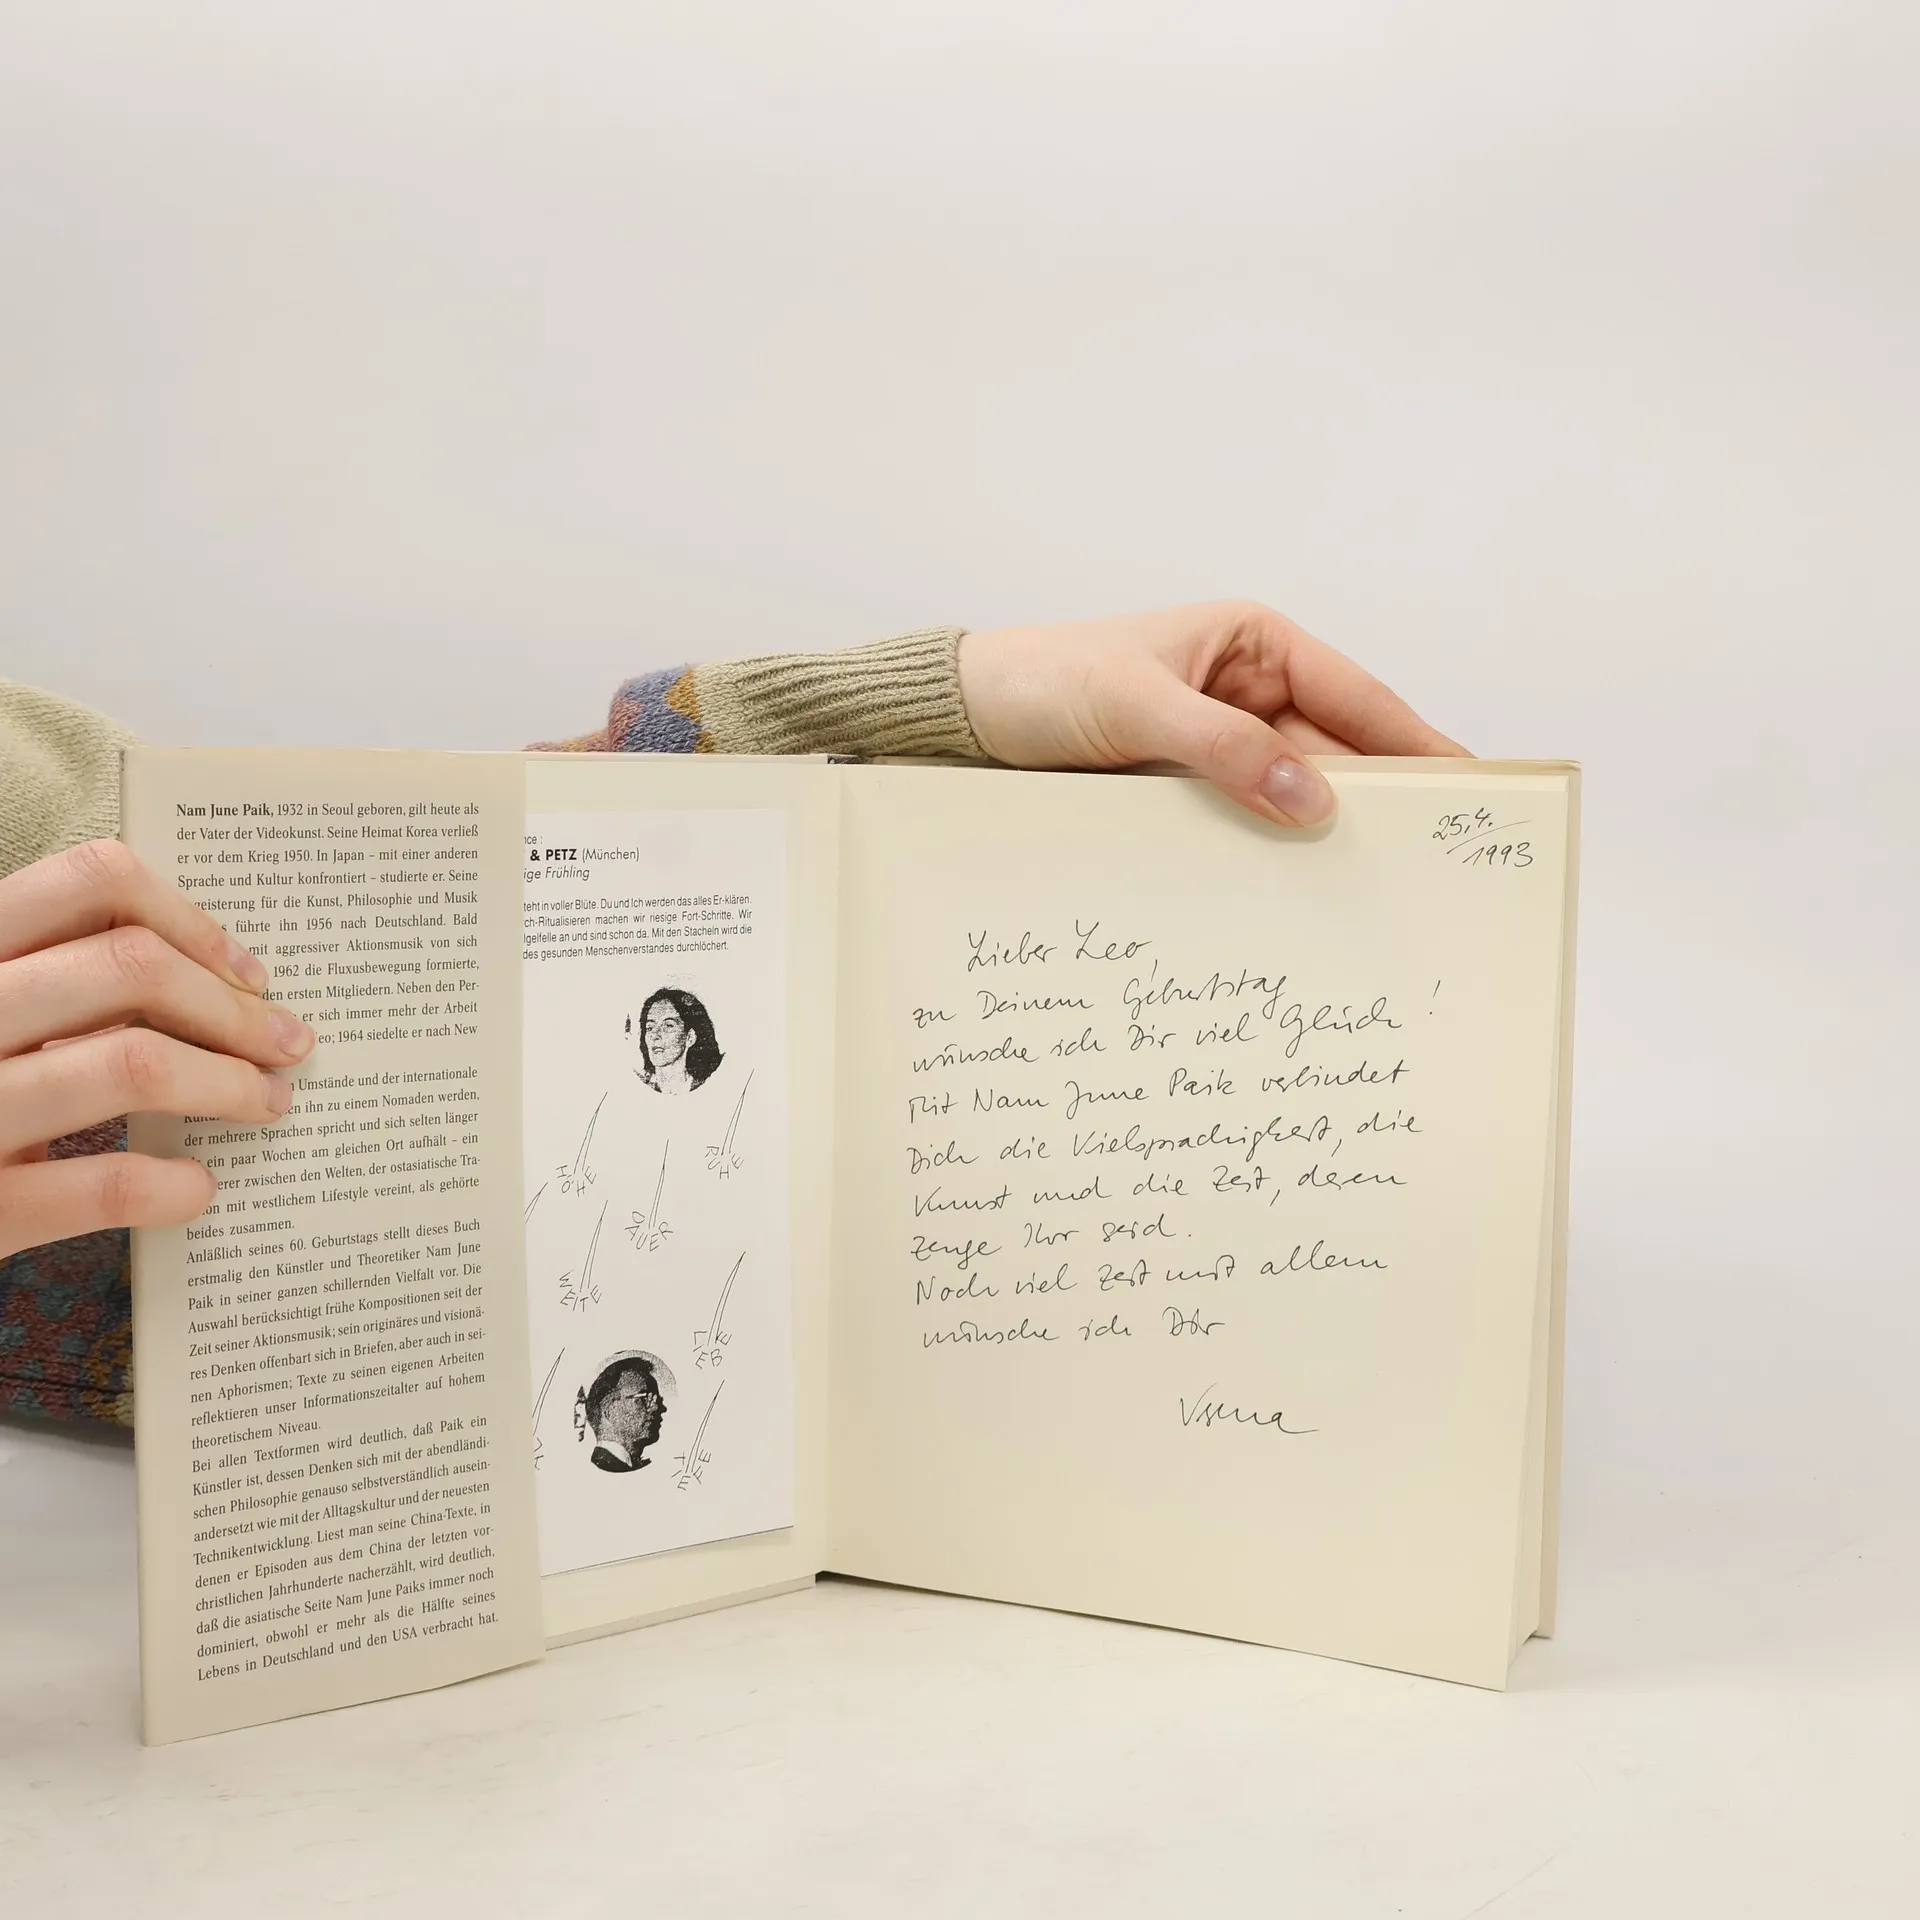 Nam June Paik, 1932 in Seoul geboren, gilt heute als
der Vater der Videokunst. Seine Heimat Korea verließ
er vor dem Krieg 1950. In Japan – mit einer anderen
Sprache und Kultur konfrontiert – studierte er. Seine
geisterung für die Kunst, Philosophie und Musik
s führte ihn 1956 nach Deutschland. Bald
mit aggressiver Aktionsmusik von sich
1962 die Fluxusbewegung formierte,
den ersten Mitgliedern. Neben den Per-
er sich immer mehr der Arbeit
eo; 1964 siedelte er nach New
Umstände und der internationale
en ihn zu einem Nomaden werden,
der mehrere Sprachen spricht und sich selten länger
ein paar Wochen am gleichen Ort aufhält – ein
erer zwischen den Welten, der ostasiatische Tra-
on mit westlichem Lifestyle vereint, als gehörte
beides zusammen.
Anläßlich seines 60. Geburtstags stellt dieses Buch
erstmalig den Künstler und Theoretiker Nam June
Paik in seiner ganzen schillernden Vielfalt vor. Die
Auswahl berücksichtigt frühe Kompositionen seit der
Zeit seiner Aktionsmusik; sein originäres und visionä-
res Denken offenbart sich in Briefen, aber auch in sei-
nen Aphorismen; Texte zu seinen eigenen Arbeiten
reflektieren unser Informationszeitalter auf hohem
theoretischem Niveau.
Bei allen Textformen wird deutlich, daß Paik ein
Künstler ist, dessen Denken sich mit der abendländi-
schen Philosophie genauso selbstverständlich ausein-
andersetzt wie mit der Alltagskultur und der neuesten
Technikentwicklung. Liest man seine China-Texte, in
denen er Episoden aus dem China der letzten vor-
christlichen Jahrhunderte nacherzählt, wird deutlich,
daß die asiatische Seite Nam June Paiks immer noch
dominiert, obwohl er mehr als die Hälfte seines
Lebens in Deutschland und den USA verbracht hat.
nce :
& PETZ (München)
ige Frühling
teht in voller Blüte. Du und Ich werden das alles Er-klären.
ch-Ritualisieren machen wir riesige Fort-Schritte. Wir
lgelfelle an und sind schon da. Mit den Stacheln wird die
des gesunden Menschenverstandes durchlöchert.
HÖHE
RUHE
DAUER
WEITE
LIEBE
TIEFE
25.4.
1993
Lieber Leo,
zu Deinem Geburtstag
wünsche ich Dir viel Glück!
Mit Nam June Paik verbindet
Dich die Vielsprachigkeit, die
Kunst und die Zeit, deren
Zeuge Ihr seid.
Noch viel Zeit mit allem
wünsche ich Dir